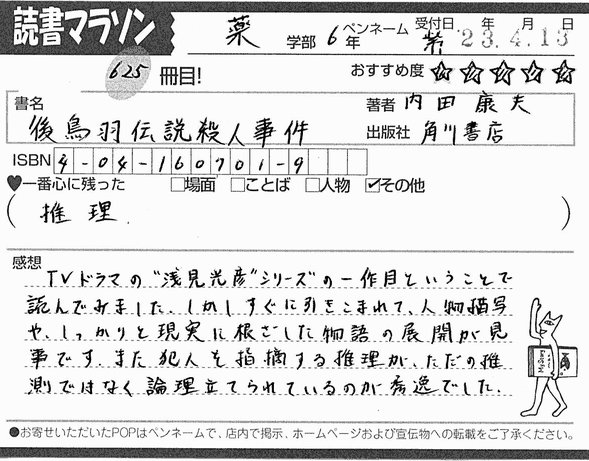 読書マラソン
薬 学部 6年 ペンネーム 紫 受付日 年 月 日 '23.4.13
625冊目! おすすめ度 ☆☆☆☆☆
書名 後鳥羽伝説殺人事件
著者 内田康夫
出版社 角川書店
ISBN 4-04-160701-9
♥一番心に残った □場面 □ことば □人物 ☑その他
( 推理. )
感想
TVドラマの"浅見光彦"シリーズの一作目ということで
読んでみました.しかしすぐに引きこまれて、人物描写
や、しっかりと現実に根ざした物語の展開が見
事です.また犯人を指摘する推理が、ただの推
測ではなく論理立てられているのが秀逸でした.
●お寄せいただいたPOPはペンネームで、店内で掲示、ホームページおよび宣伝物への転載をご了承ください。